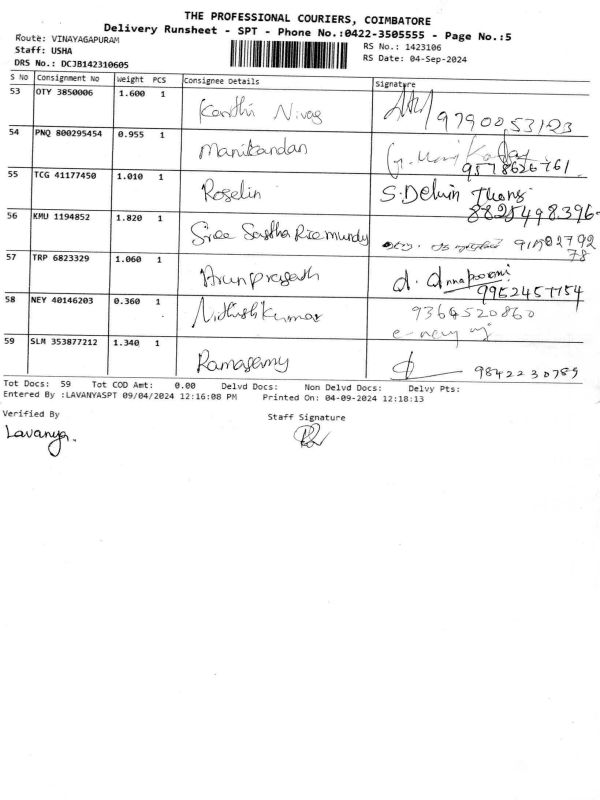 THE PROFESSIONAL COURIERS, COIMBATORE
Delivery Runsheet - SPT - Phone No.:0422-3505555 - Page No.:5
Route: VINAYAGAPURAM
Staff: USHA
DRS No.: DCJB142310605
RS No.: 1423106
RS Date: 04-Sep-2024
S No Consignment No Weight PCS Consignee Details Signature
53 OTY 3850006 1.600 1 Kanthi Nivas 9790053123
54 PNQ 800295454 0.955 1 Manikandan 9578626761
55 TCG 41177450 1.010 1 Roselin S. Delwin
8825498396
56 KMU 1194852 1.820 1 Sree Sastha 911902792
78
57 TRP 6823329 1.060 1 Arunprasath d. Annapoorani
9952457154
58 NEY 40146203 0.360 1 Nithishkumar 9364520860
59 SLM 353877212 1.340 1 Ramasamy 9842230789
Tot Docs: 59 Tot COD Amt: 0.00 Delvd Docs: Non Delvd Docs: Delvy Pts:
Entered By :LAVANYASPT 09/04/2024 12:16:08 PM Printed On: 04-09-2024 12:18:13
Verified By Staff Signature
Lavanya.